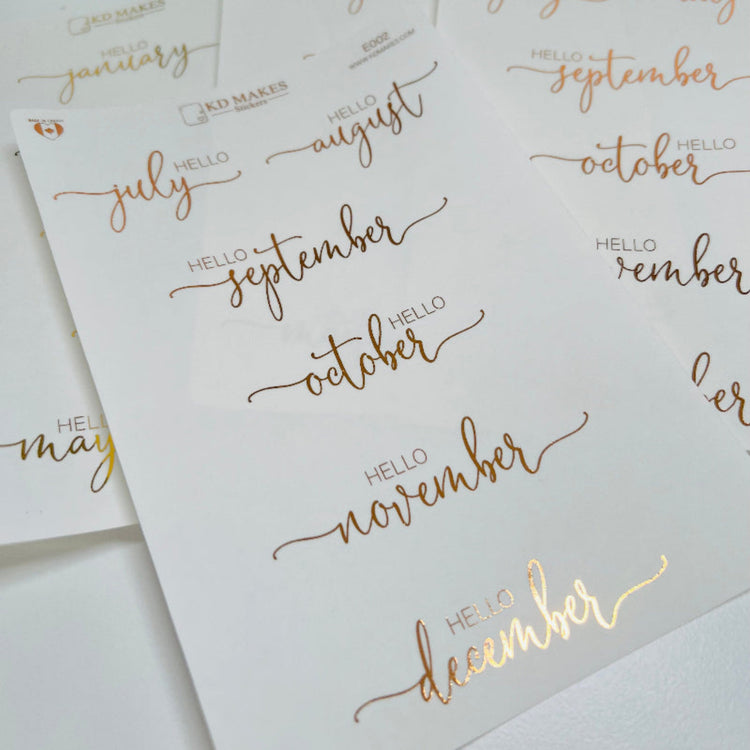 KD MAKES
HELLO
january
HELL
may
MADE IN CANADA
KD MAKES
Stickers
E002
WWW.KDMAKES.COM
HELLO
july
HELLO
august
HELLO
september
HELLO
october
HELLO
november
HELLO
december
HELLO
september
HELLO
october
HELLO
vember
ber